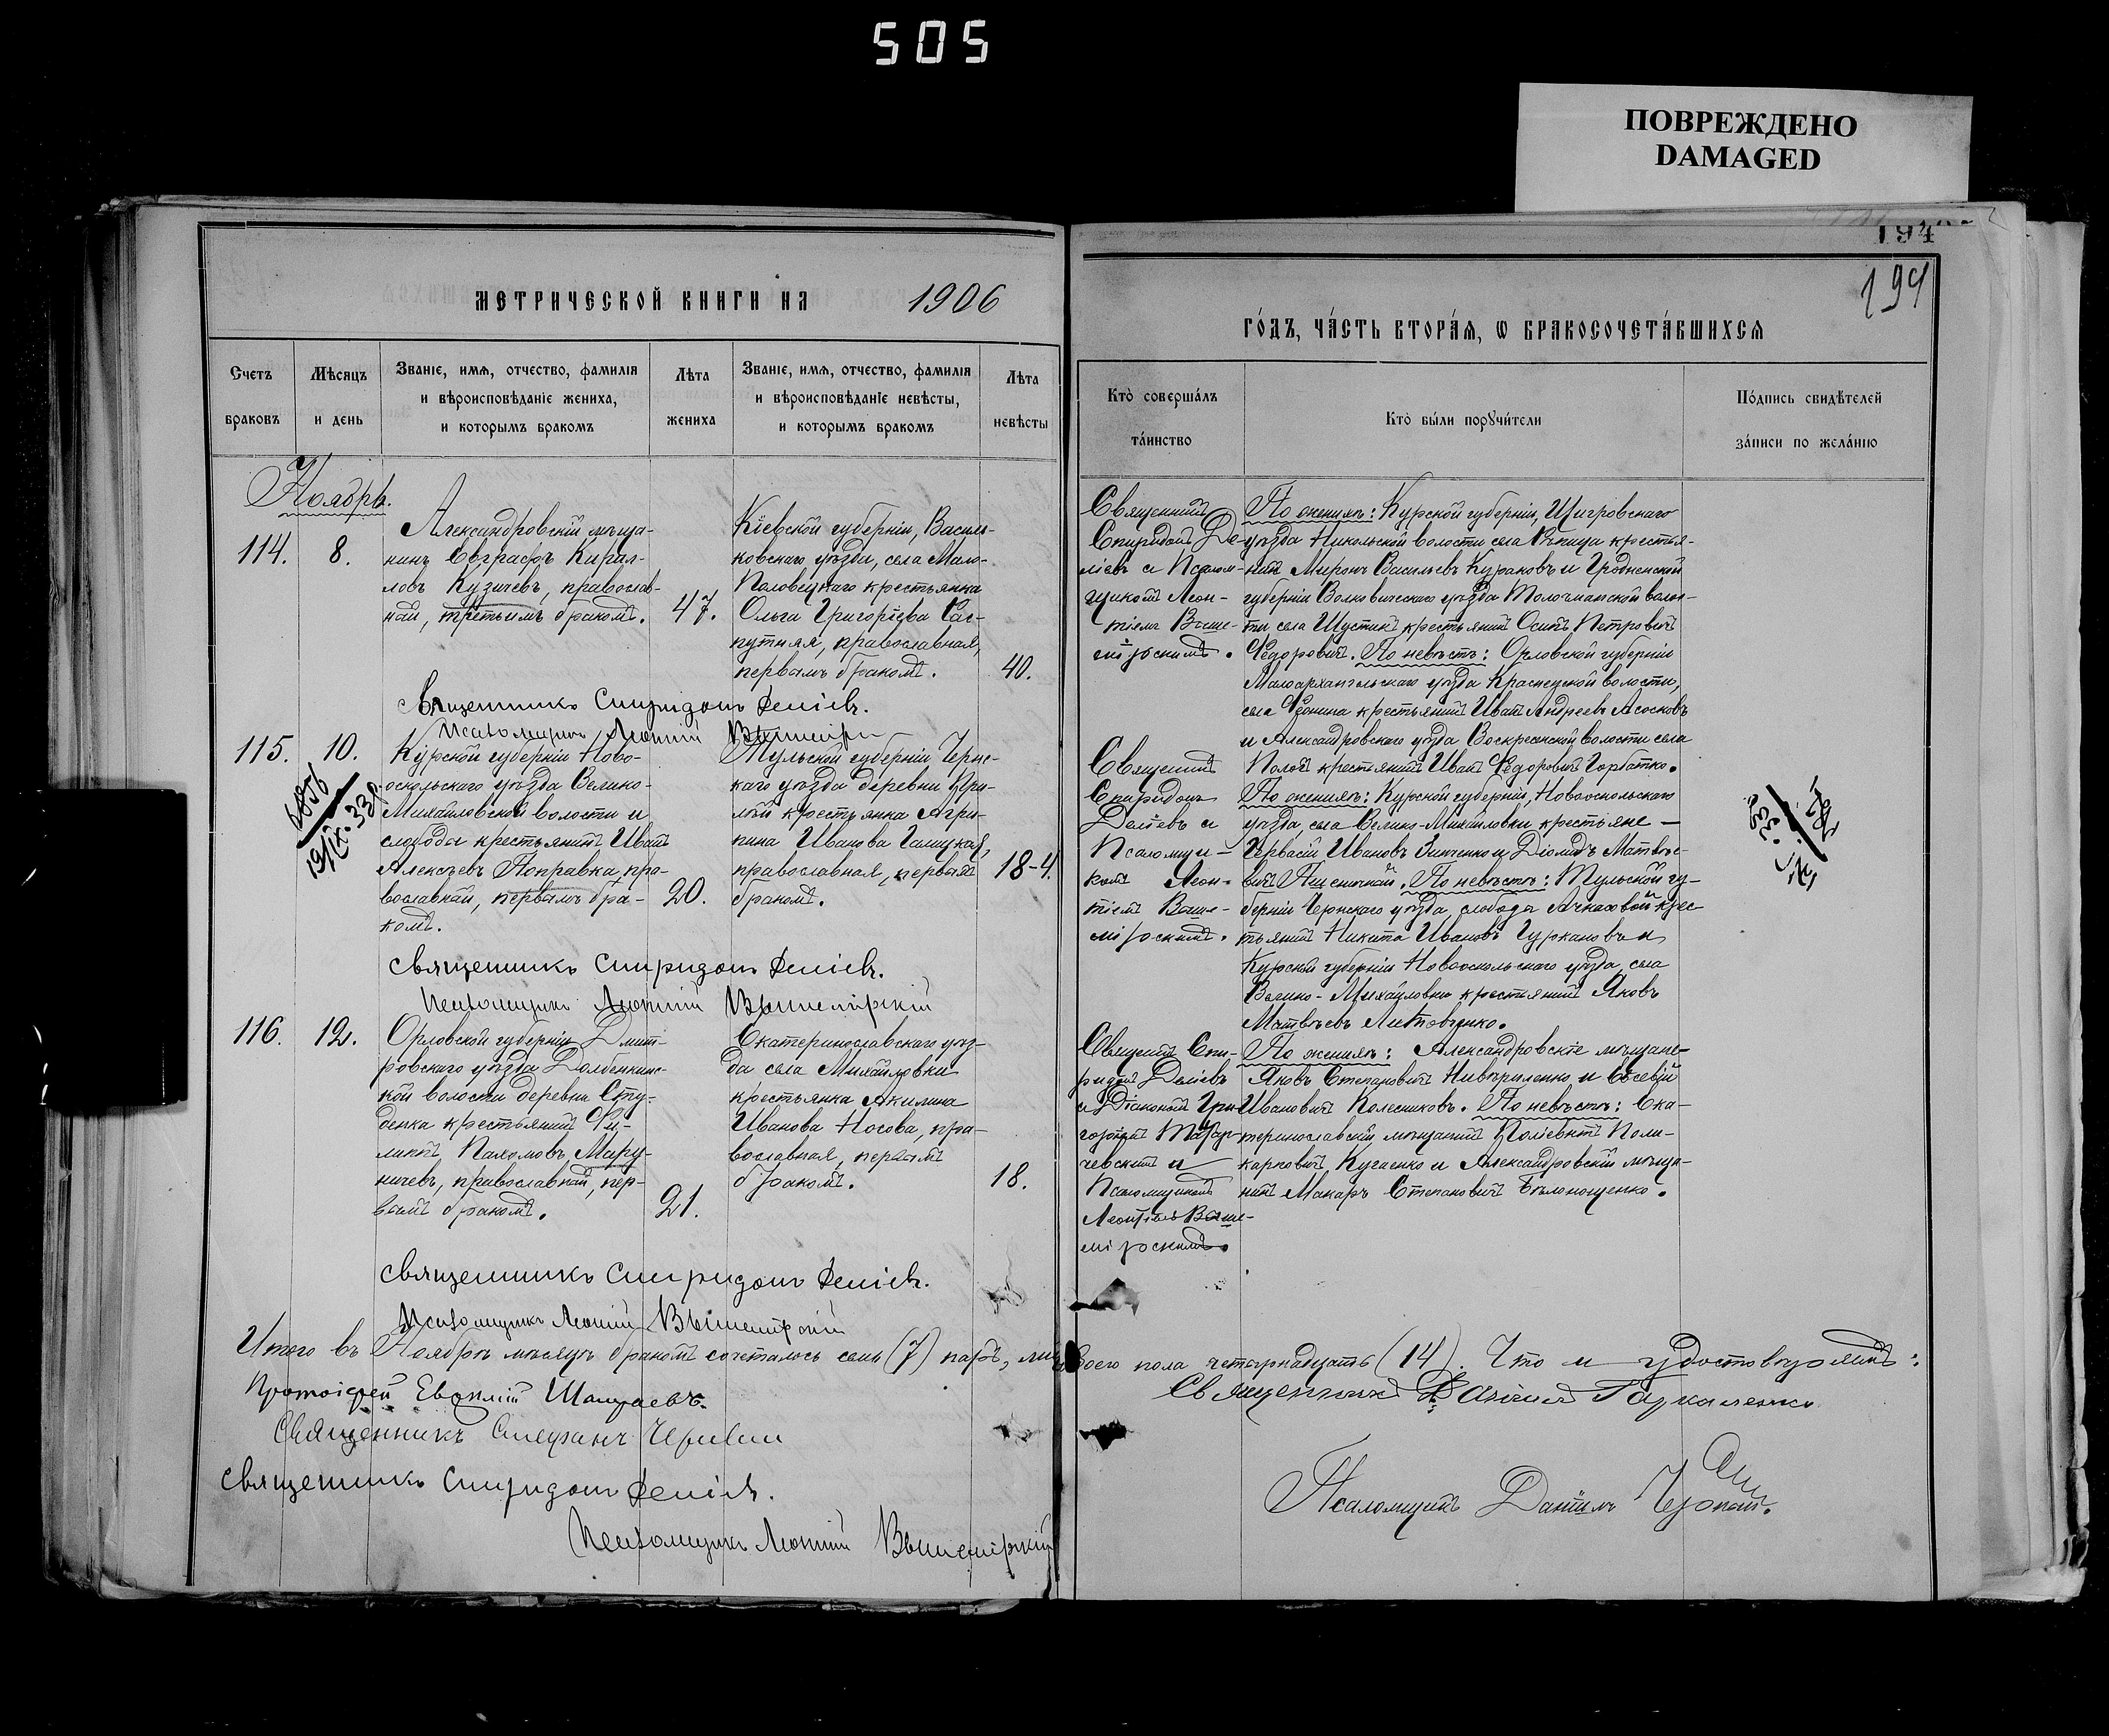 505
ПОВРЕЖДЕНО
DAMAGED
194
194
МЕТРИЧЕСКОЙ КНИГИ НА 1906
ГО́ДЪ, ЧА́СТЬ ВТОРА́Ѧ, Ѡ БРАКОСОЧЕТА́ВШИХСѦ
Счетъ
браковъ
Мѣсяцъ
и день
Званіе, имѧ, отчество, фамиліѧ
и вѣроисповѣданіе жениха,
и которымъ бракомъ
Лѣта
жениха
Званіе, имѧ, отчество, фамиліѧ
и вѣроисповѣданіе невѣсты,
и которымъ бракомъ
Лѣта
невѣсты
Кто̀ соверша́лъ
та́инство
Кто̀ бы́ли порꙋчи́тели
По́дпись свидѣ́телей
за́писи по жела́нію
Ноябрь.
114.
8.
Александровскій мѣща-
нинъ Евграфъ Кирил-
ловъ Кузичевъ, православ-
ный, третьимъ бракомъ.
47.
Кіевской губерніи, Василь-
ковскаго уѣзда, села Мало-
Половецкаго крестьянка
Ольга Григоріева Рас-
путняя, православная,
первымъ бракомъ.
40.
Священникъ
Спиридонъ Де-
ліевъ и Псалом-
щикомъ Леон-
тіемъ Выше-
мірскимъ.
По женихѣ: Курской губерніи, Щигровскаго
уѣзда Никольской волости села крестья-
нинъ Миронъ Васильевъ Кураковъ и Гродненской
губерніи Волковическаго уѣзда волос-
ти села крестьянинъ Осипъ Петровичъ
Ѳедоровичъ. По невѣстѣ: Орловской губерніи
Малоархангельскаго уѣзда волости,
села крестьянинъ Иванъ Андреевъ Асосковъ
и Александровскаго уѣзда Воскресенской волости села
Пологъ крестьянинъ Иванъ Ѳедоровичъ Горбатко.
Священникъ Спиридонъ Деліевъ.
Псаломщикъ Леонтій Вышемірскій
115.
10.
6856
19/IX.338
Курской губерніи Ново-
оскольскаго уѣзда Велико-
Михайловской волости и
слободы крестьянинъ Иванъ
Алексѣевъ Поправка, пра-
вославный, первымъ бра-
комъ.
20.
Тульской губерніи Чернс-
каго уѣзда деревни При-
лѣпъ крестьянка Агри-
пина Иванова Галицкая,
православная, первымъ
бракомъ.
18-4.
Священникъ
Спиридонъ
Деліевъ и
Псаломщи-
комъ Леон-
тіемъ Выше-
мірскимъ.
По женихѣ: Курской губерніи, Новооскольскаго
уѣзда, села Велико-Михайловки крестьяне —
Гервасій Ивановъ Зинченко и Діомидъ Матвѣе-
вичъ Пшеничный. По невѣстѣ: Тульской гу-
берніи Чернскаго уѣзда, слободы крес
тьянинъ Никита Ивановъ Цуркановъ и
Курской губерніи Новооскольскаго уѣзда, села
Велико-Михайловки крестьянинъ Яковъ
Матвѣевъ Литовченко.
Священникъ Спиридонъ Деліевъ.
Псаломщикъ Леонтій Вышемірскій
116.
12.
Орловской губерніи Дмит-
ровскаго уѣзда Долбенкинс-
кой волости деревни Сту-
денка крестьянинъ Фи-
липпъ Пахомовъ Мару-
ничевъ, православный, пер-
вымъ бракомъ.
21.
Екатеринославскаго уѣз-
да села Михайловки
крестьянка Акилина
Иванова Носова, пра-
вославная, первымъ
бракомъ.
18.
Священникъ Спи-
ридонъ Деліевъ
и Діаконъ Гри-
горій
и
Псаломщикомъ
Леонтіемъ Выше-
мірскимъ.
По женихѣ: Александровскіе мѣщане
Яковъ Степановичъ и Евсевій
Ивановичъ Колесниковъ. По невѣстѣ: Ека-
теринославскій мѣщанинъ Поліевктъ Поли-
карповичъ Кугаенко и Александровскій мѣща-
нинъ Макаръ Степановичъ Бѣлоноженко.
Священникъ Спиридонъ Деліевъ.
Псаломщикъ Леонтій Вышемірскій
Итого въ Ноябрѣ мѣсяцѣ бракомъ сочеталось семь (7) паръ, лицъ обоего пола четырнадцать (14). Что и удостовѣряемъ:
Протоіерей Евѳимій
Священникъ Гаркаленко
Священникъ Стефанъ
Священникъ Спиридонъ Деліевъ.
Псаломщикъ Даніилъ
Псаломщикъ Леонтій Вышемірскій